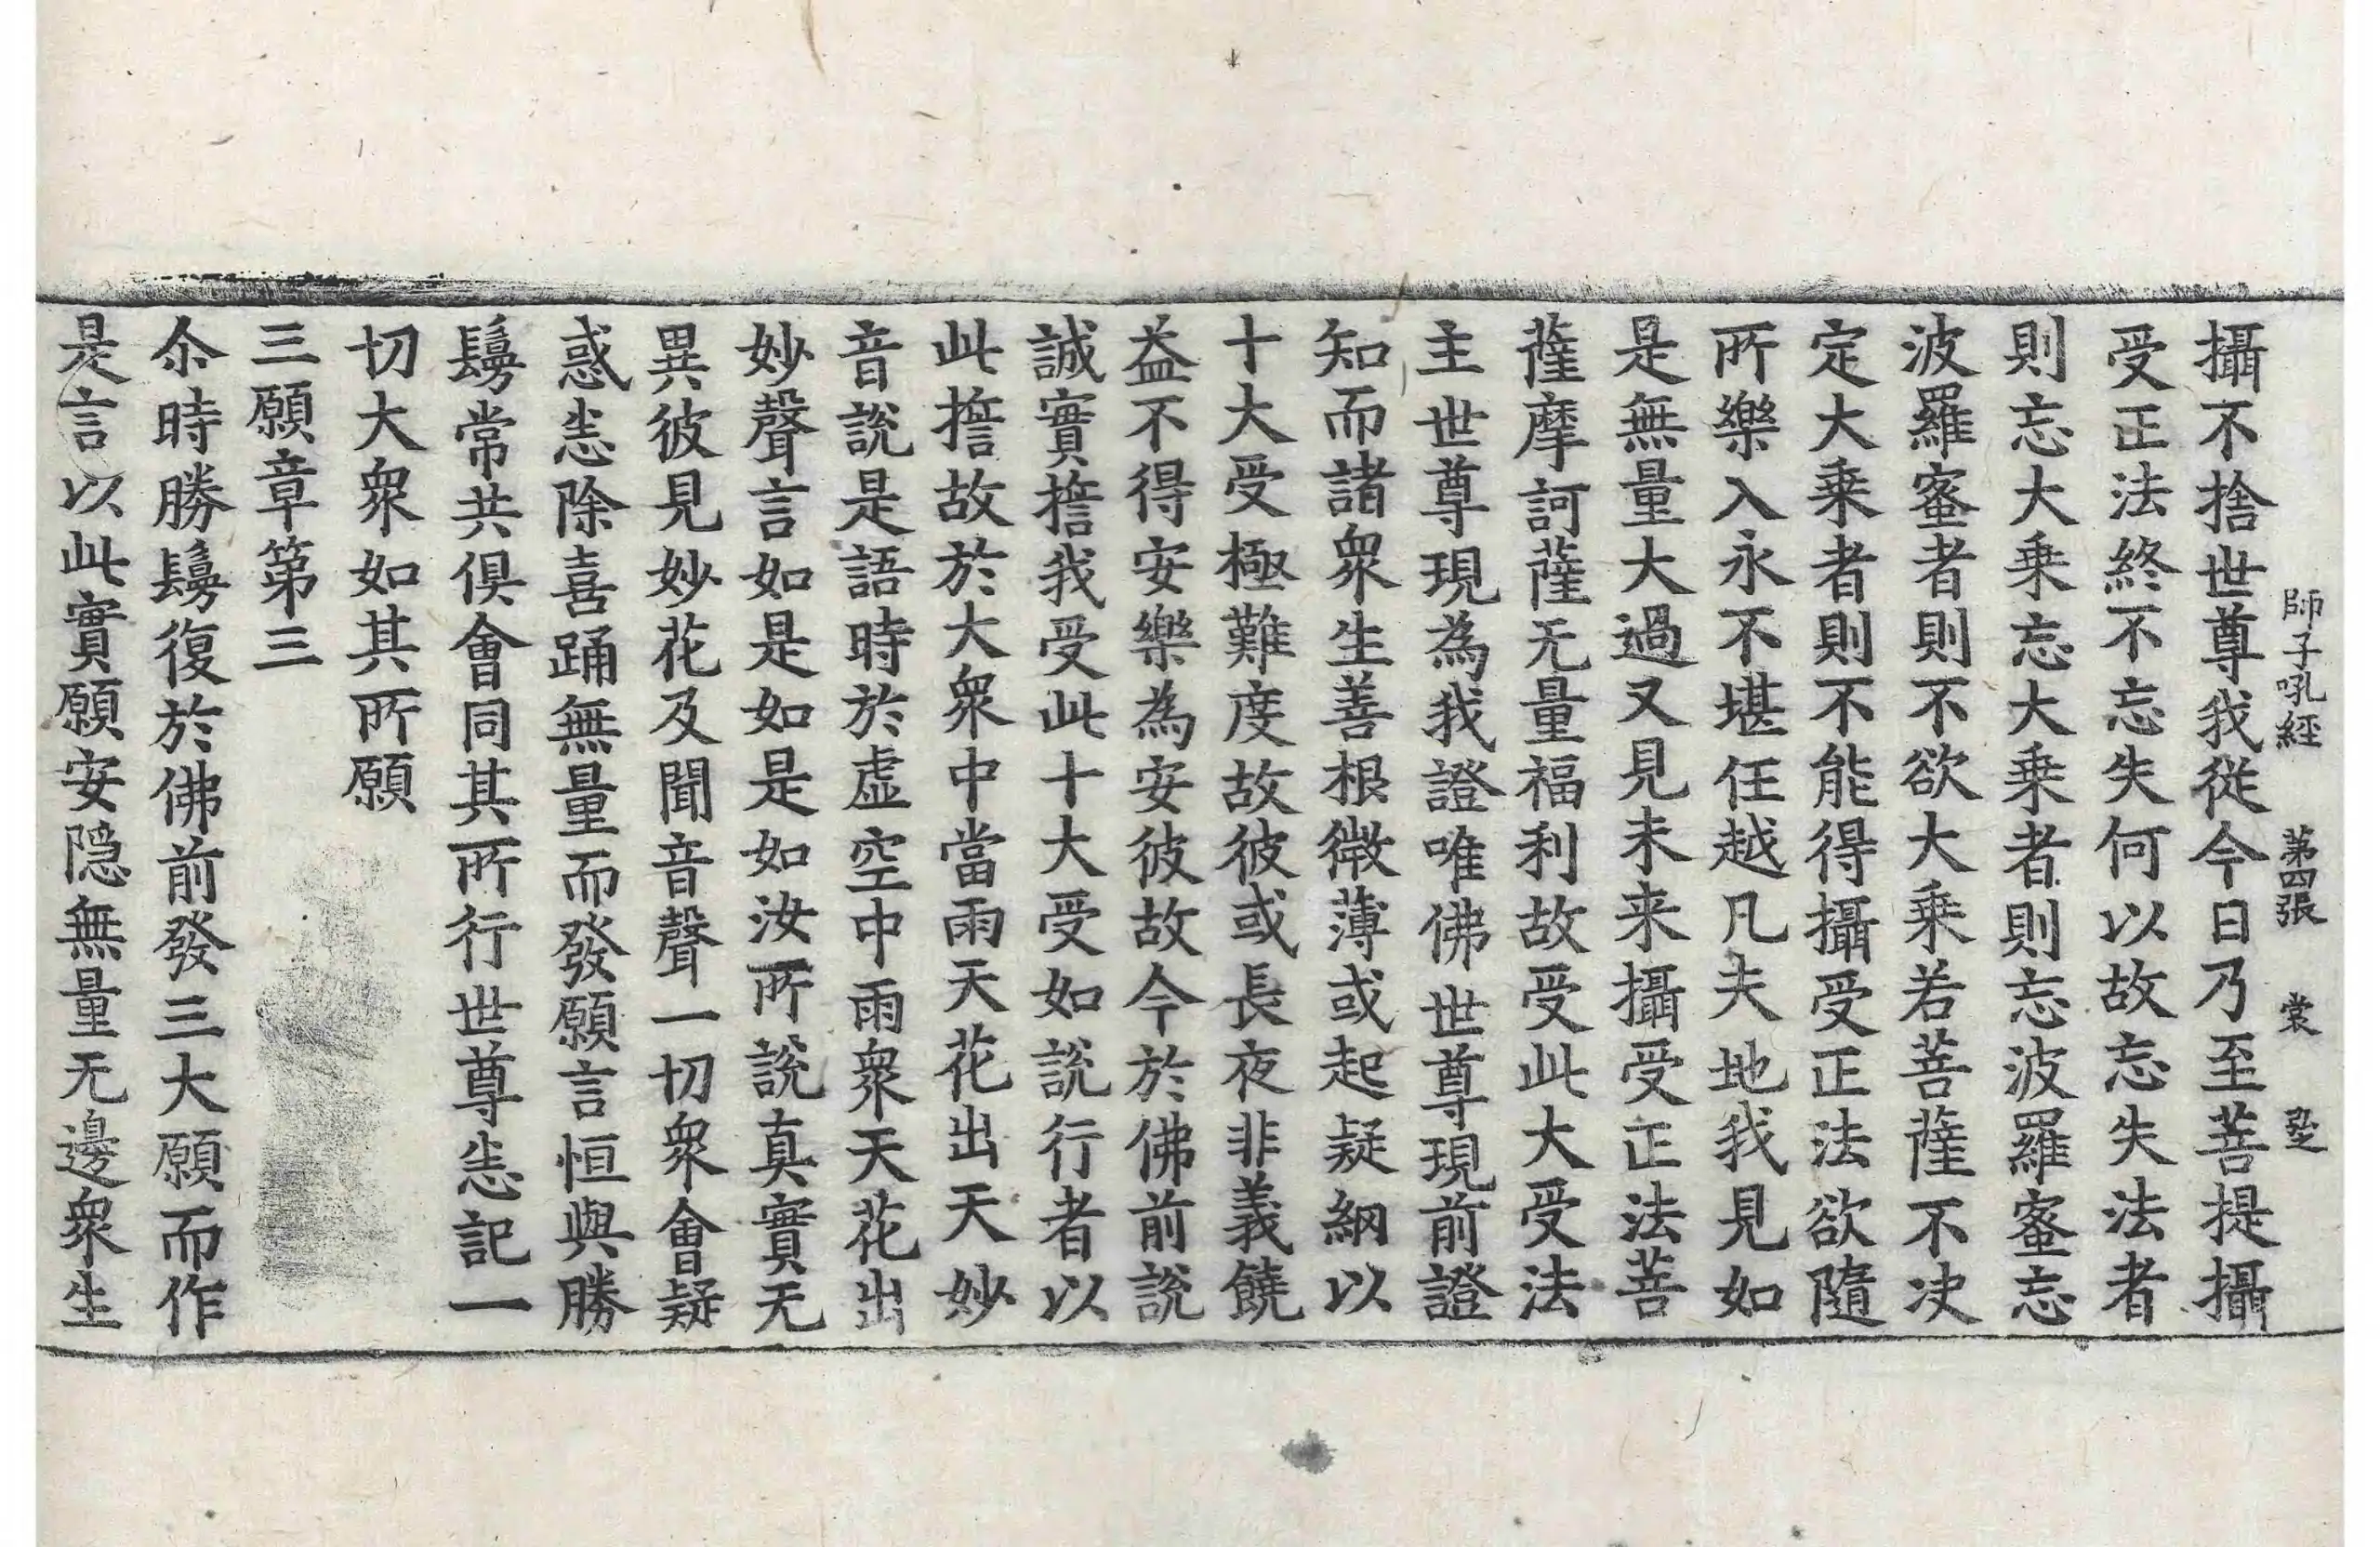 師子吼經 第四張 裳
攝不捨世尊我從今日乃至菩提攝
受正法終不忘失何以故忘失法者
則忘大乗忘大乗者則忘波羅蜜忘
波羅蜜者則不欲大乗若菩薩不决
定大乗者則不能得攝受正法欲隨
所樂入永不堪任越凡夫地我見如
是無量大過又見未来攝受正法菩
薩摩訶薩无量福利故受此大受法
主世尊現為我證唯佛世尊現前證
知而諸衆生善根微薄或起疑網以
十大受極難度故彼或長夜非義饒
益不得安樂為安彼故今於佛前說
誠實擔我受此十大受如說行者以
此擔故於大衆中當雨天花出天妙
音說是語時於虚空中雨衆天花出
妙聲言如是如是如汝所說真實无
異彼見妙花及聞音聲一切衆會疑
惑悉除喜踊無量而發願言恒與勝
鬘常共俱會同其所行世尊悉記一
切大衆如其所願
三願章第三
尒時勝鬘復於佛前發三大願而作
是言以此實願安隱無量无邊衆生